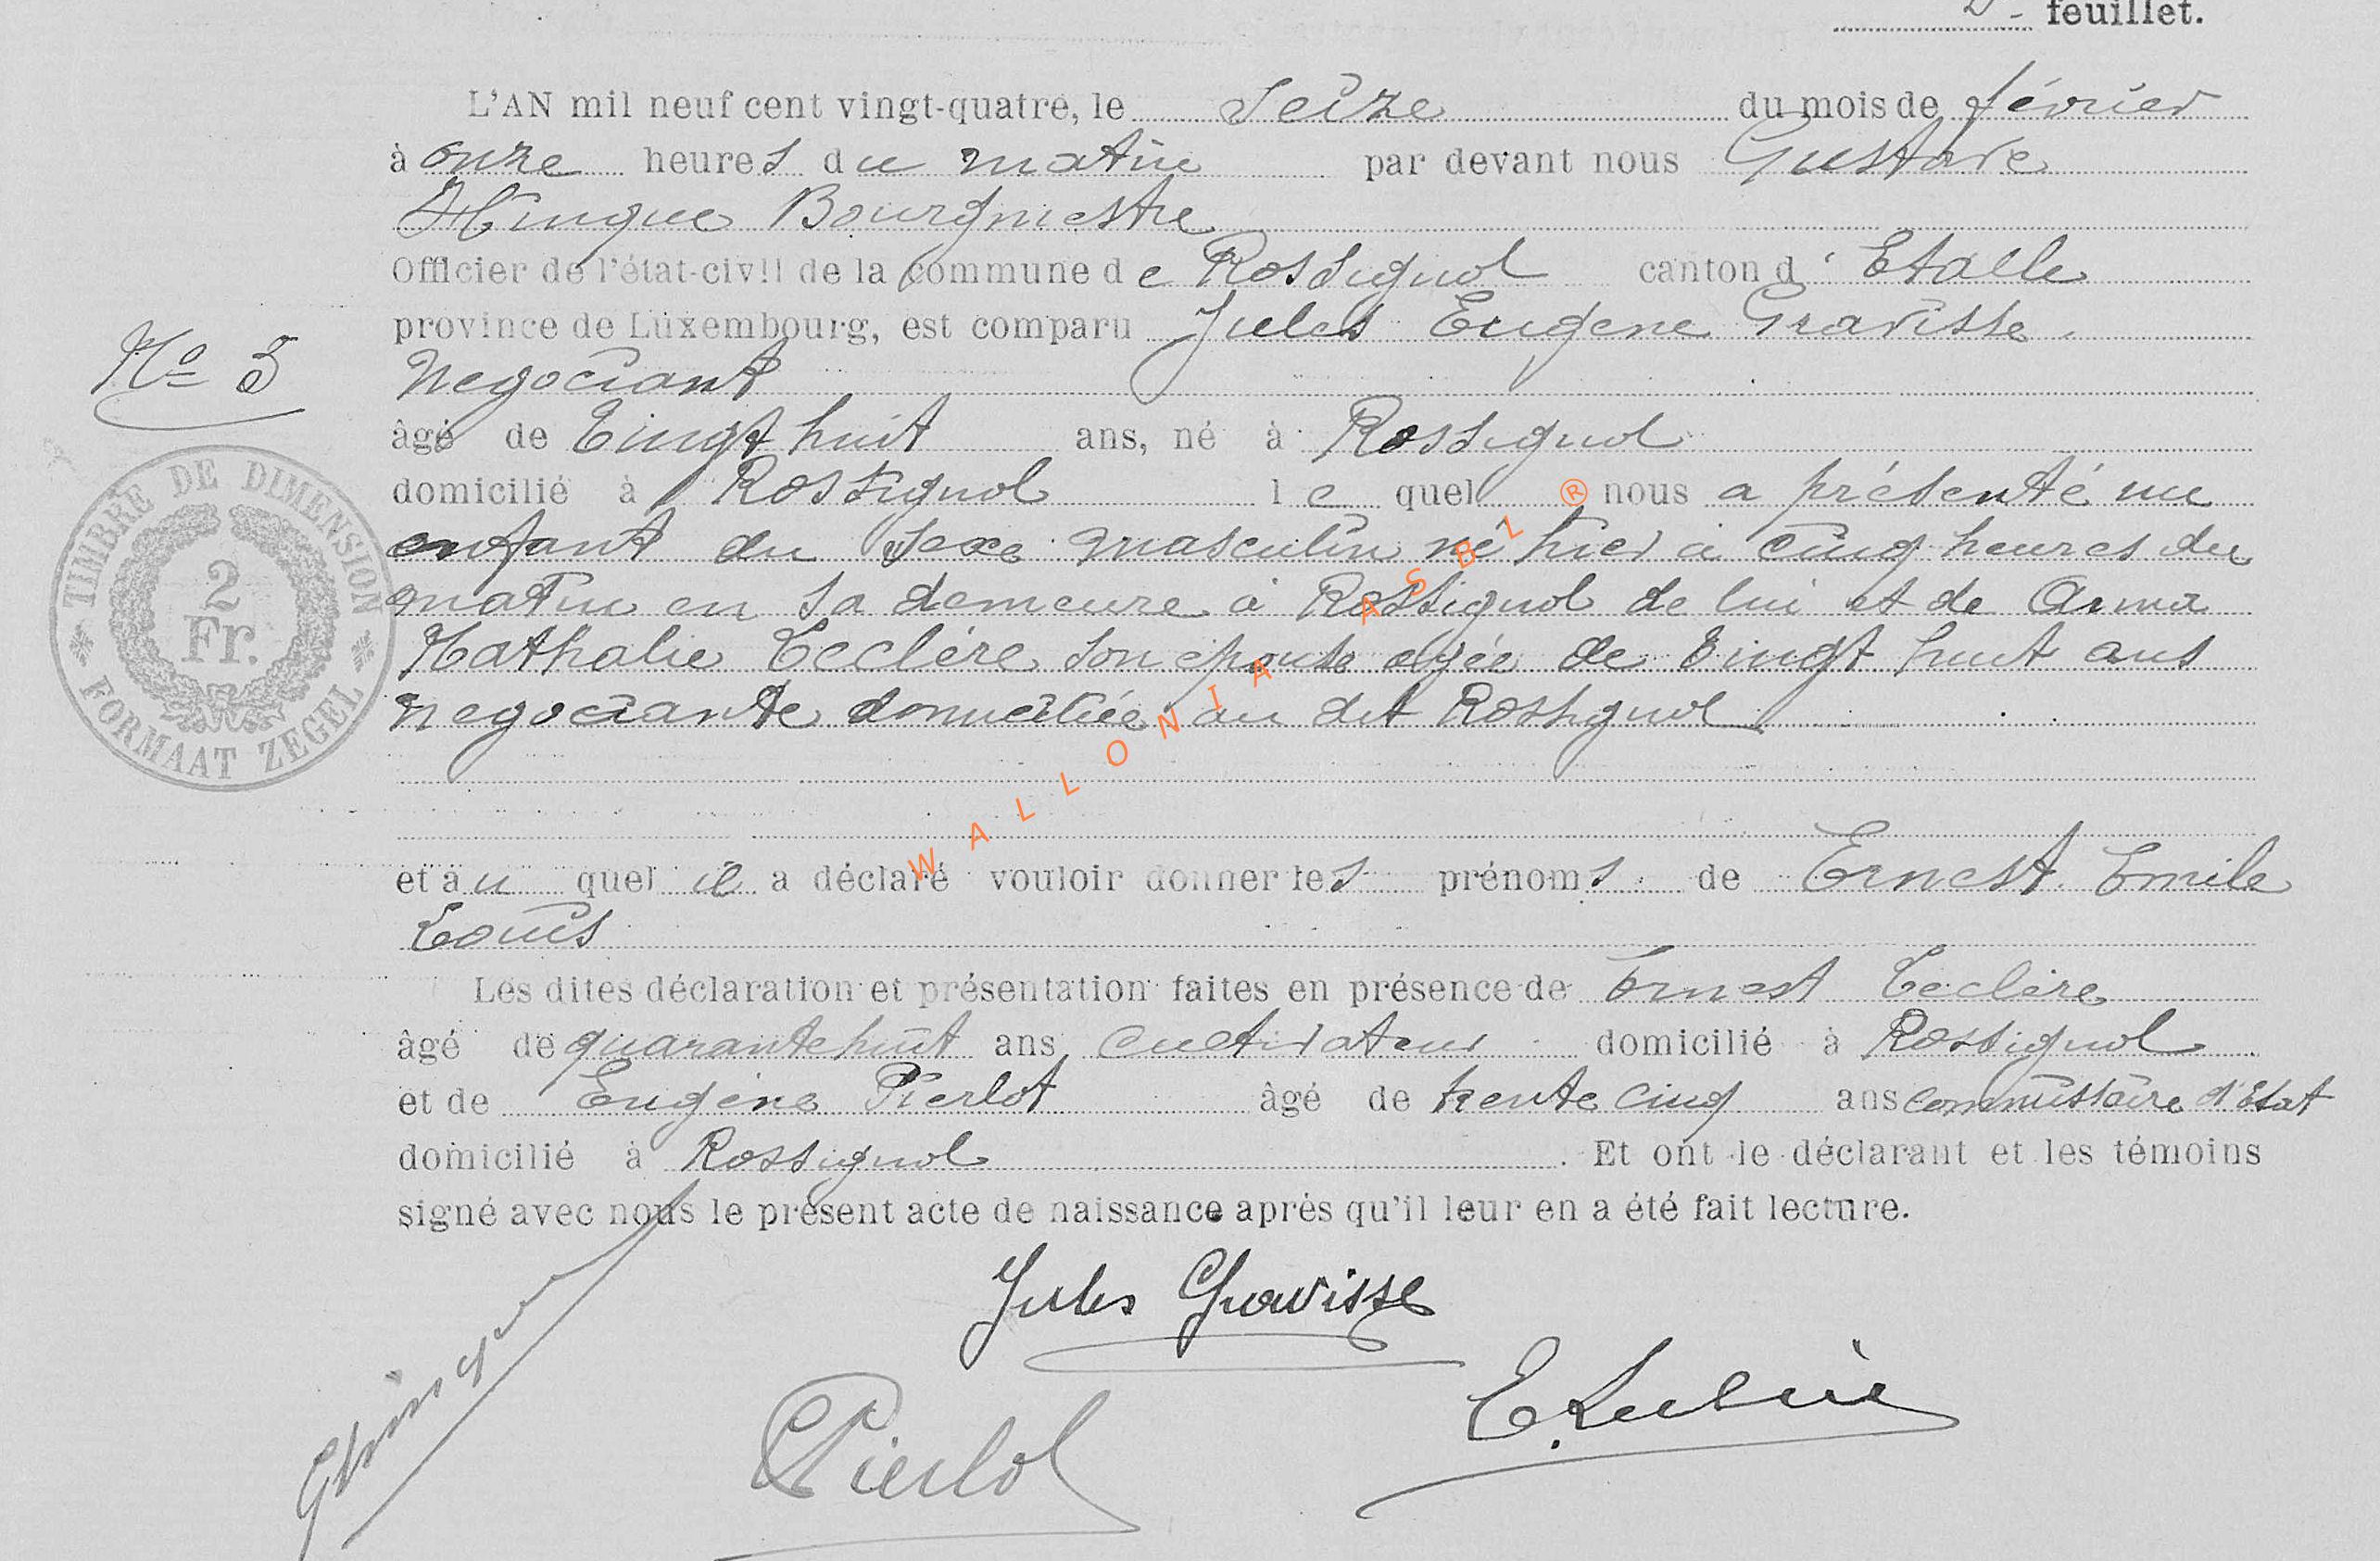 2e feuillet.
L'AN mil neuf cent vingt-quatre, le seize du mois de février
à onze heures du matin par devant nous Gustave
Hinque Bourgmestre
Officier de l'état-civil de la commune de Rossignol canton d' Etalle
province de Luxembourg, est comparu Jules Eugene Gravisse
Negociant
No 3
âgé de Vingt huit ans, né à Rossignol
domicilié à Rossignol lequel nous a présenté un
enfant du sexe masculin né hier à cinq heures du
matin en sa demeure à Rossignol de lui et de Anna
Nathalie Leclère son epouse agée de vingt huit ans
negociante domiciliée au dit Rossignol
TIMBRE DE DIMENSION
2
Fr.
FORMAAT ZEGEL
WALLONIA ASBL ®
et au quel il a déclaré vouloir donner les prénoms de Ernest Emile
Louis
Les dites déclaration et présentation faites en présence de Ernest Leclère
âgé de quarante huit ans cultivateur domicilié à Rossignol
et de Eugène Pierlot âgé de trente cinq ans commissaire d'Etat
domicilié à Rossignol . Et ont le déclarant et les témoins
signé avec nous le présent acte de naissance après qu'il leur en a été fait lecture.
Jules Gravisse
E. Leclère
GHinque
EPierlot